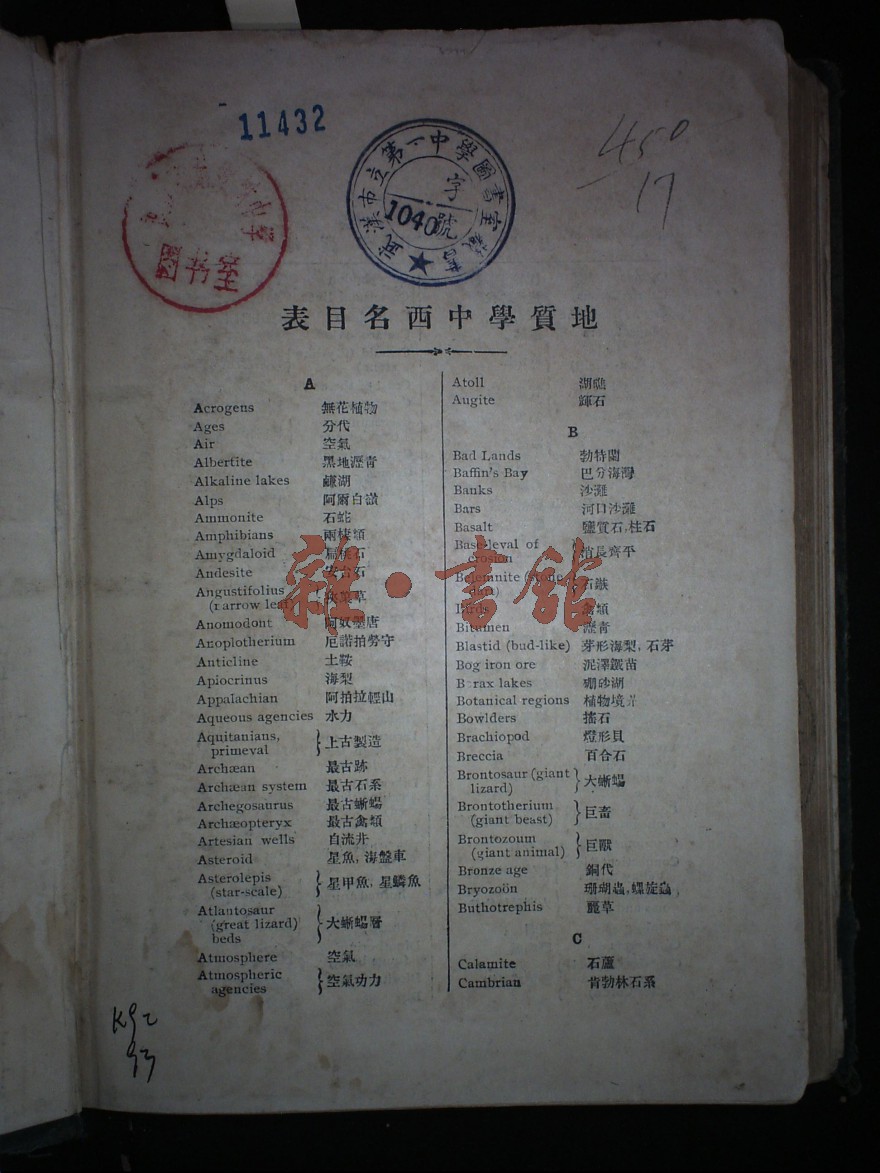 11432
武漢市立第一中學圖書室藏書
字
1040號
图书室
450
17
表目名西中學質地
A
Acrogens 無花植物
Ages 分代
Air 空氣
Albertite 黑地瀝青
Alkaline lakes 鹹湖
Alps 阿爾白嶺
Ammonite 石蛇
Amphibians 兩棲類
Amygdaloid 扁桃石
Andesite 安台石
Angustifolius
(narrow leaf) 草
Anomodont
Anoplotherium 厄諾拍勞守
Anticline 土鞍
Apiocrinus 海梨
Appalachian 阿拍拉輕山
Aqueous agencies 水力
Aquitanians,
primeval 上古製造
Archæan 最古跡
Archæan system 最古石系
Archegosaurus 最古蜥蜴
Archæopteryx 最古禽類
Artesian wells 自流井
Asteroid 星魚, 海盤車
Asterolepis
(star-scale) 星甲魚, 星鱗魚
Atlantosaur
(great lizard)
beds 大蜥蜴層
Atmosphere 空氣
Atmospheric
agencies 空氣功力
Atoll 湖礁
Augite 輝石
B
Bad Lands 勃特闌
Baffin's Bay 巴分海灣
Banks 沙灘
Bars 河口沙灘
Basalt 鹽質石, 柱石
Base-leval of
erosion 消長齊平
Belemnite (stone
dart) 石鏃
Birds 禽類
Bitumen 瀝青
Blastid (bud-like) 芽形海梨, 石芽
Bog iron ore 泥澤鐵苗
B rax lakes 硼砂湖
Botanical regions 植物境界
Bowlders 搖石
Brachiopod 燈形貝
Breccia 百合石
Brontosaur (giant
lizard) 大蜥蜴
Brontotherium
(giant beast) 巨畜
Brontozoum
(giant animal) 巨獸
Bronze age 銅代
Bryozoön 珊瑚蟲, 螺旋蟲
Buthotrephis 麗草
C
Calamite 石蘆
Cambrian 肯勃林石系
雜·書館
K92
93